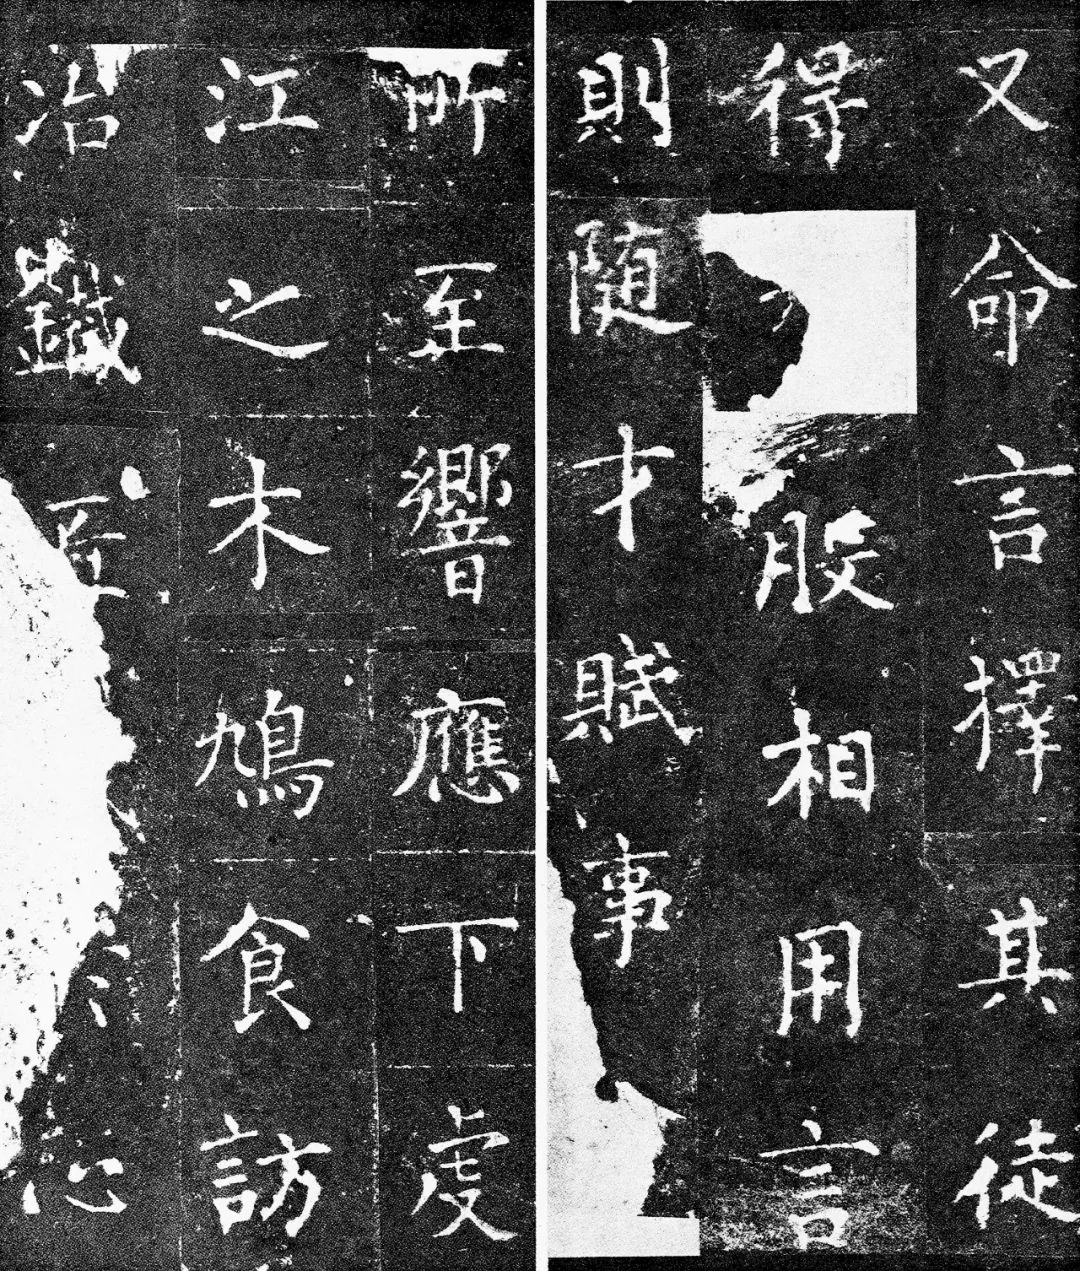 又命言擇其徒
得股相用言
則随才賦事
所至響應下虔
江之木鳩食訪
冶鐵至心